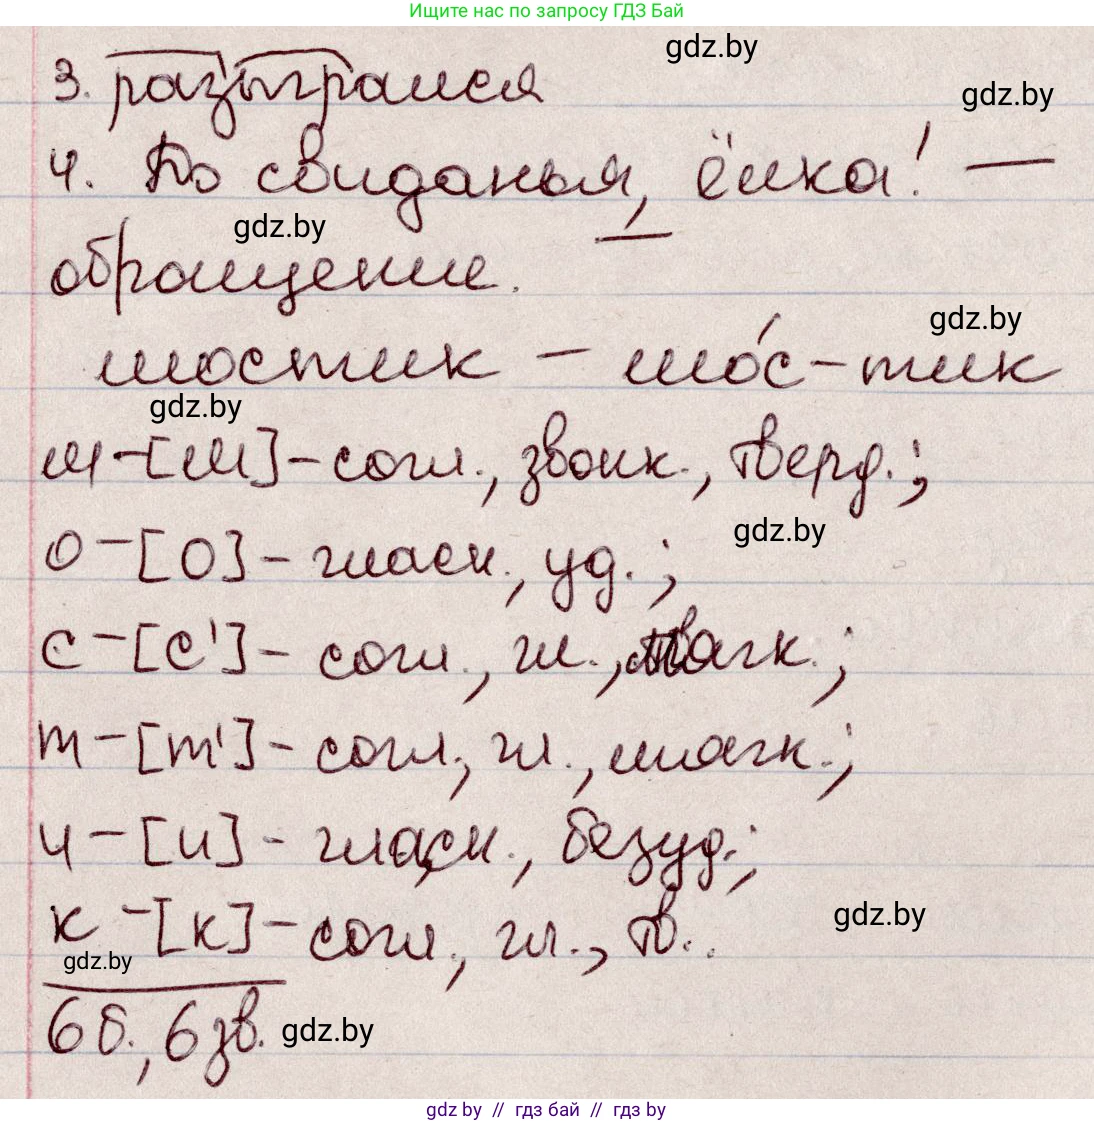 Ищите нас по запросу ГДЗ Бай
gdz.by
3. разыграися
gdz.by
4. До свиданья, ёлка! —
gdz.by
обращение.
gdz.by
мостик – мо́с-тик
gdz.by
м – [м] – согл., звонк., тверд.;
gdz.by
о – [о] – гласн., уд.;
с – [с'] – согл., гл., мягк.;
т – [т'] – согл., гл., мягк.;
и – [и] – гласн., безуд.;
gdz.by
к – [к] – согл., гл., тв..
gdz.by
6 б., 6 зв.
gdz.by
gdz by // гдз бай // гдз by